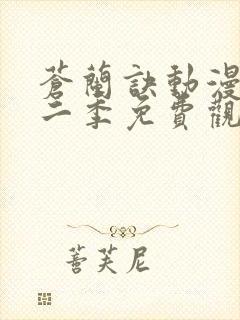 蒼蘭訣動漫
二季免費觀
善芙尼